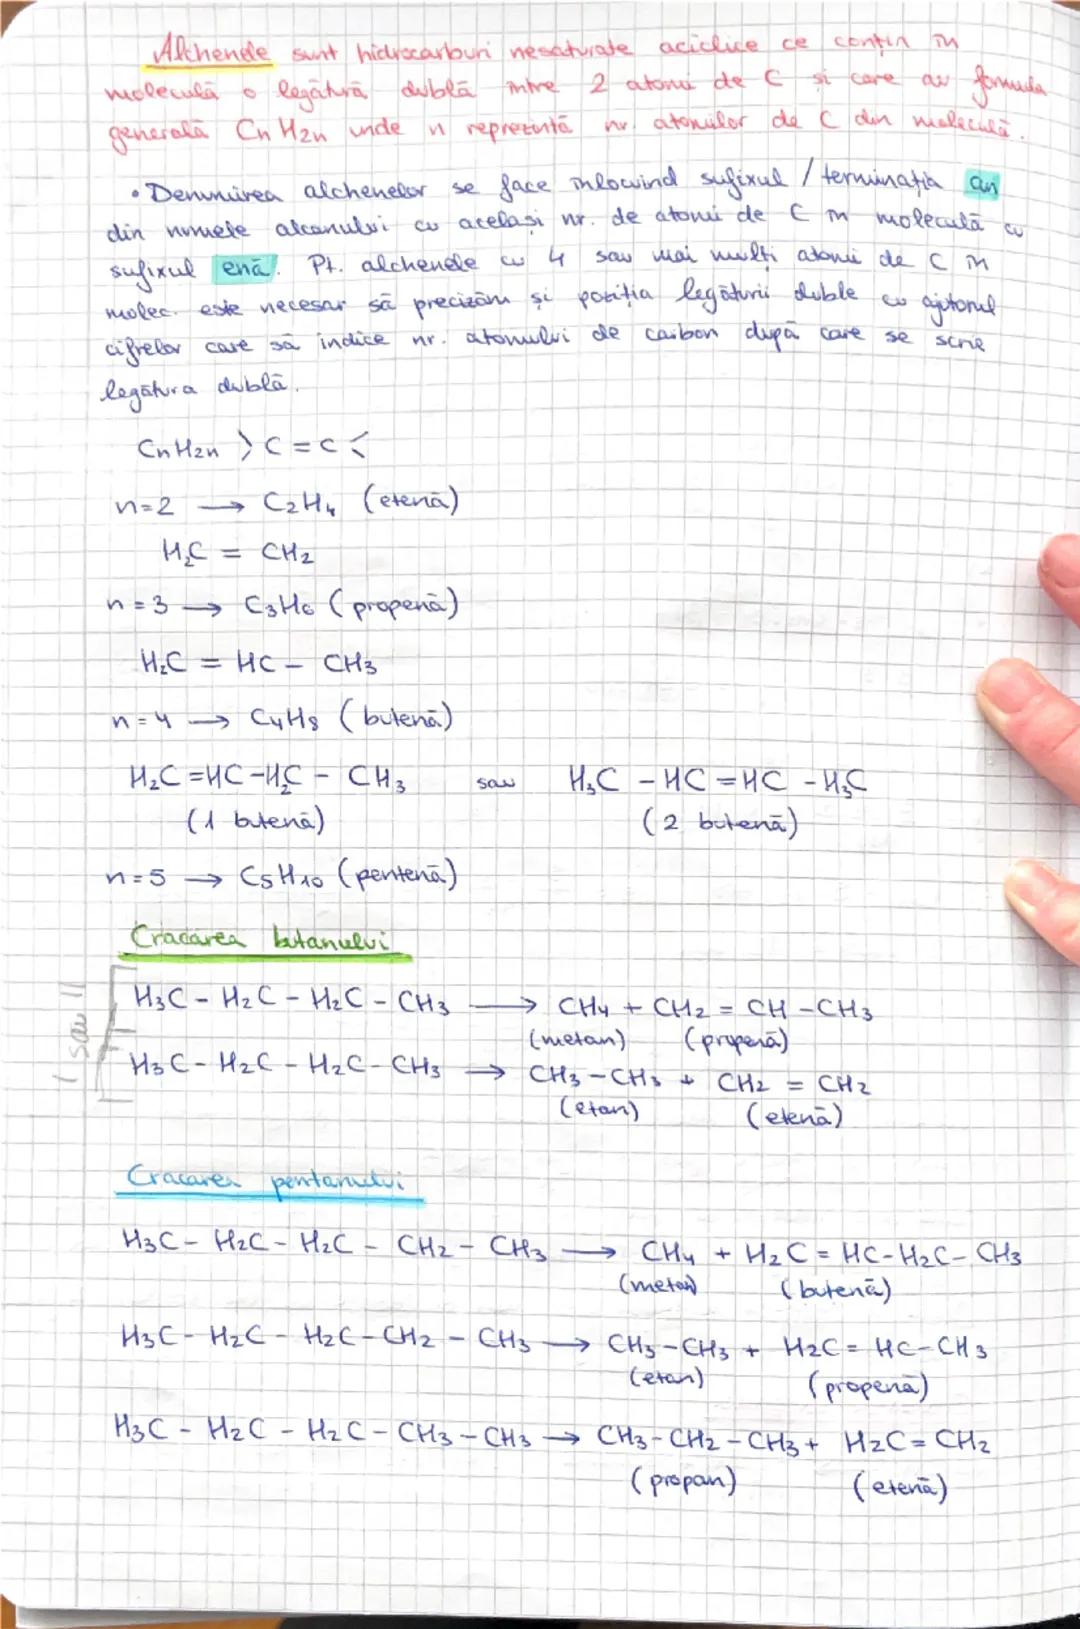 Alchenele sunt hidrocarburi nesaturate aciclice ce conțin în
moleculă o legătură dublă între 2 atomi de C și care au formula
generală CnH2n unde n reprezintă nr. atomilor de C din moleculă.
• Denumirea alchenelor se face înlocuind sufixul / terminația an
din numele alcanului cu același nr. de atomi de C în moleculă cu
sufixul enă. Pt. alchenele cu 4 sau mai mulți atomi de C în
molec. este necesar să precizăm și poziția legăturii duble cu ajutorul
cifrelor care să indice nr. atomului de carbon după care se scrie
legătura dublă.
CnH2n >C=C<
n=2 → C2H4 (etenă)
H2C = CH2
n=3 → C3H6 (propenă)
H2C = HC - CH3
n=4 → C4H8 (butenă)
H2C=HC-H2C - CH3 sau H3C - HC=HC - H3C
(1 butenă) (2 butenă)
n=5 → C5H10 (pentenă)
Cracarea butanului
I sau II
H3C - H2C - H2C - CH3 → CH4 + CH2 = CH-CH3
(metan) (propenă)
H3C - H2C - H2C - CH3 → CH3-CH3 + CH2 = CH2
(etan) (etenă)
Cracarea pentanului
H3C - H2C - H2C - CH2 - CH3 → CH4 + H2C = HC-H2C-CH3
(metan) (butenă)
H3C - H2C - H2C - CH2 - CH3 → CH3-CH3 + H2C = HC-CH3
(etan) (propenă)
H3C - H2C - H2C - CH3 - CH3 → CH3-CH2-CH3 + H2C=CH2
(propan) (etenă)